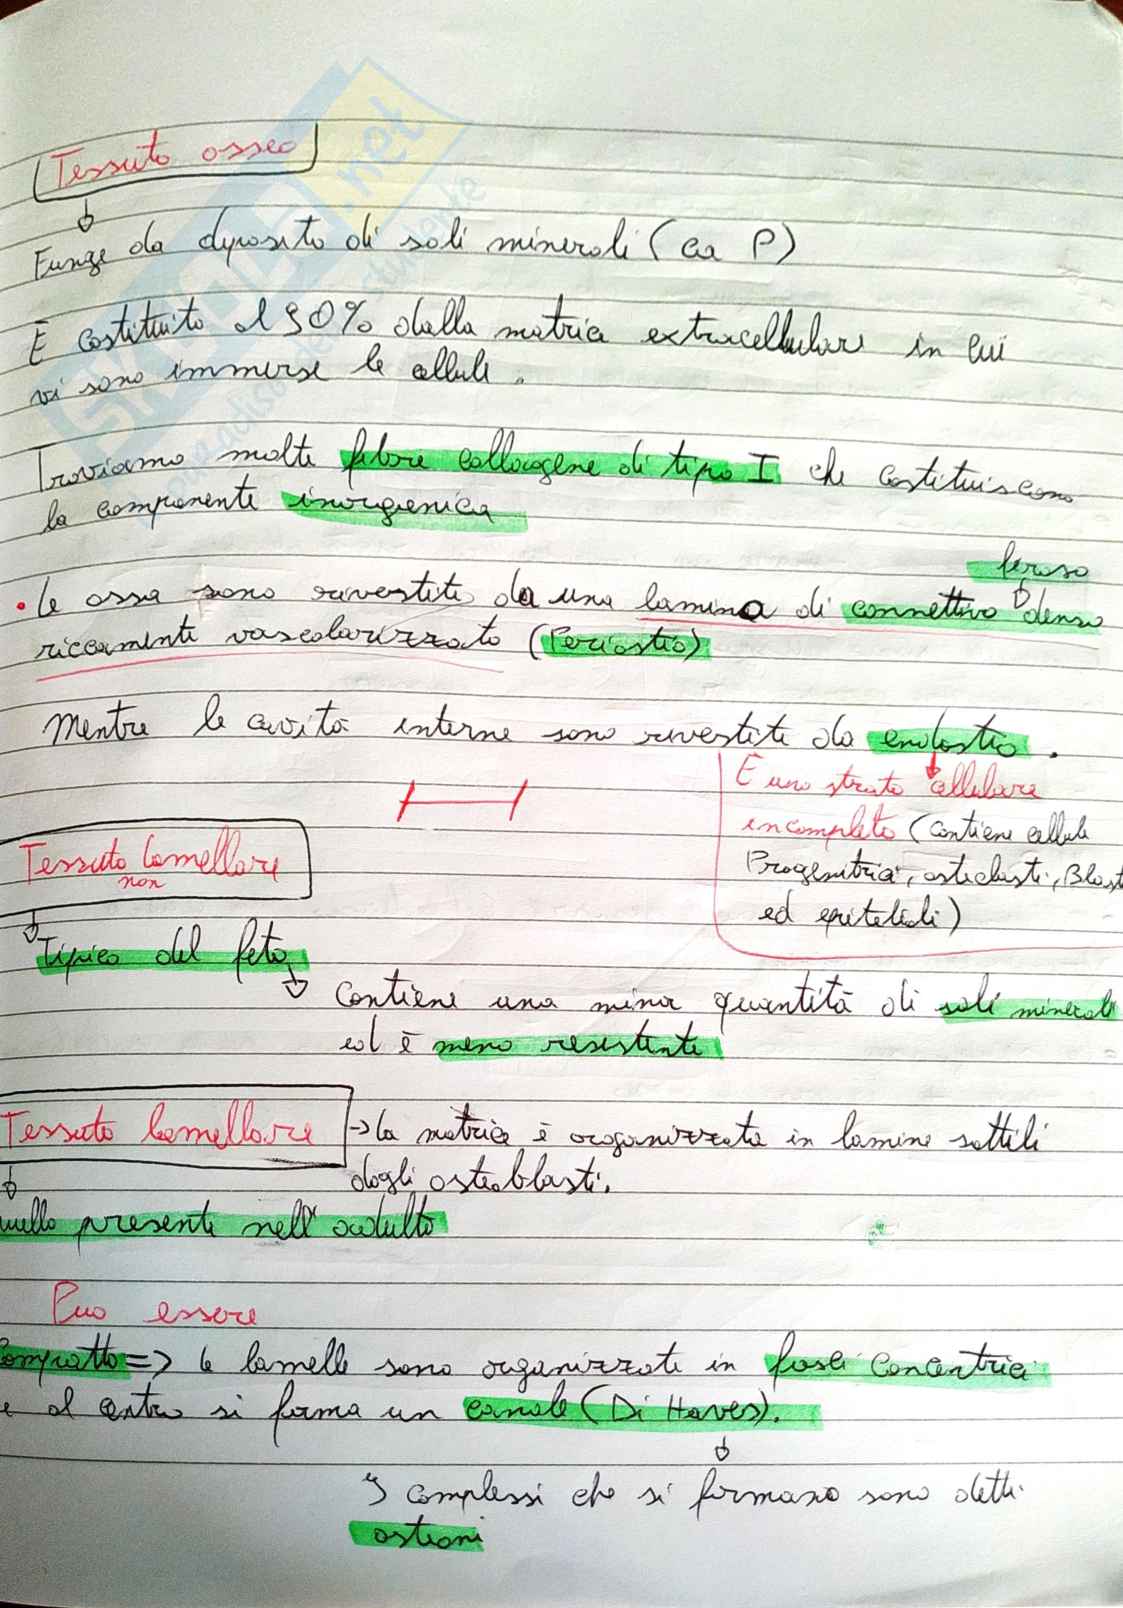 Tessuto osseo
Funge da deposito di sali minerali (Ca P)
È costituito al 90% dalla matrice extracellulare in cui
vi sono immerse le cellule.
Troviamo molte fibre collagene di tipo I che costituiscono
la componente inorganica
fibroso
• Le ossa sono rivestite da una lamina di connettivo denso
riccamente vascolarizzato (Periostio)
Mentre le cavità interne sono rivestite da endostio.
È uno strato cellulare
incompleto (contiene cellule
Progenitrici, osteclasti, Blast
ed epiteliali)
Tessuto lamellare
non
Tipico del feto
Contiene una minor quantità di sali minerali
ed è meno resistente
Tessuto lamellare → La matrice è organizzata in lamine sottili
dagli osteoblasti.
quello presente nell'adulto
Può essere
Compatto => le lamelle sono organizzate in fasci concentrici
e al centro si forma un canale (Di Haves).
I complessi che si formano sono detti
osteoni
SKUOLA.net
paradiso dello studente